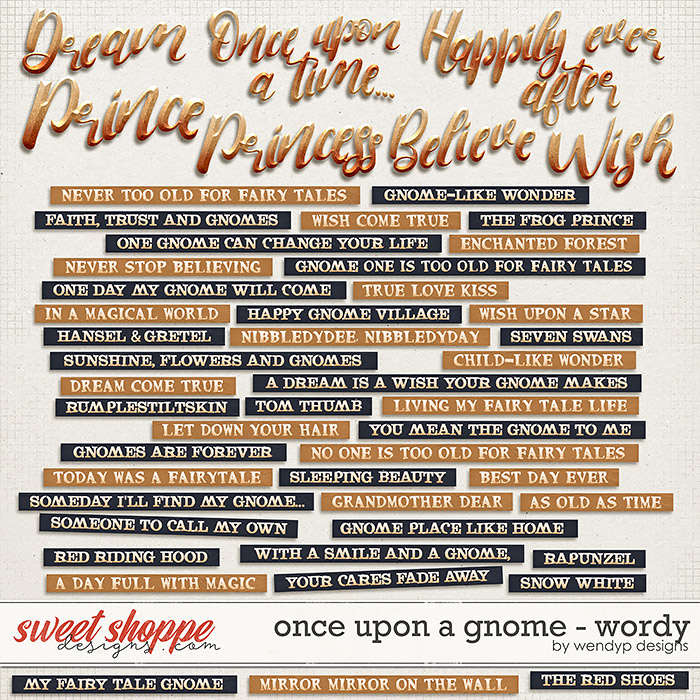 Dream Once upon a time... Happily ever after
Prince Princess Believe Wish
NEVER TOO OLD FOR FAIRY TALES GNOME-LIKE WONDER
FAITH, TRUST AND GNOMES WISH COME TRUE THE FROG PRINCE
ONE GNOME CAN CHANGE YOUR LIFE ENCHANTED FOREST
NEVER STOP BELIEVING GNOME ONE IS TOO OLD FOR FAIRY TALES
ONE DAY MY GNOME WILL COME TRUE LOVE KISS
IN A MAGICAL WORLD HAPPY GNOME VILLAGE WISH UPON A STAR
HANSEL & GRETEL NIBBLEDYDEE NIBBLEDYDAY SEVEN SWANS
SUNSHINE, FLOWERS AND GNOMES CHILD-LIKE WONDER
DREAM COME TRUE A DREAM IS A WISH YOUR GNOME MAKES
RUMPLESTILTSKIN TOM THUMB LIVING MY FAIRY TALE LIFE
LET DOWN YOUR HAIR YOU MEAN THE GNOME TO ME
GNOMES ARE FOREVER NO ONE IS TOO OLD FOR FAIRY TALES
TODAY WAS A FAIRYTALE SLEEPING BEAUTY BEST DAY EVER
SOMEDAY I'LL FIND MY GNOME... GRANDMOTHER DEAR AS OLD AS TIME
SOMEONE TO CALL MY OWN GNOME PLACE LIKE HOME
RED RIDING HOOD WITH A SMILE AND A GNOME, RAPUNZEL
A DAY FULL WITH MAGIC YOUR CARES FADE AWAY SNOW WHITE
sweet shoppe designs.com once upon a gnome - wordy
by wendyp designs
MY FAIRY TALE GNOME MIRROR MIRROR ON THE WALL THE RED SHOES